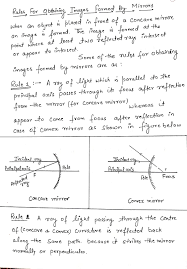 Rules For Obtaining Images Formed By Mirrors
When an object is placed in front of a concave mirror
an image is formed. The image is formed at the
point where at least two reflected rays intersect
or appear to intersect.
Some of the rules for obtaining
images formed by mirrors are as :
Rule 1 :- A ray of light which is parallel to the
principal axis passes through its focus after reflection
from the mirror (for concave mirror) whereas it
appear to come from focus after reflection in
case of convex mirror as shown in figure below
Incident ray
Principal axis
Concave mirror
Incident ray
Principal axis
Focus
Convex mirror
Rule 2 A ray of light passing through the centre
of (concave & convex) curvature is reflected back
along the same path because it strikes the mirror
normally or perpendicular.